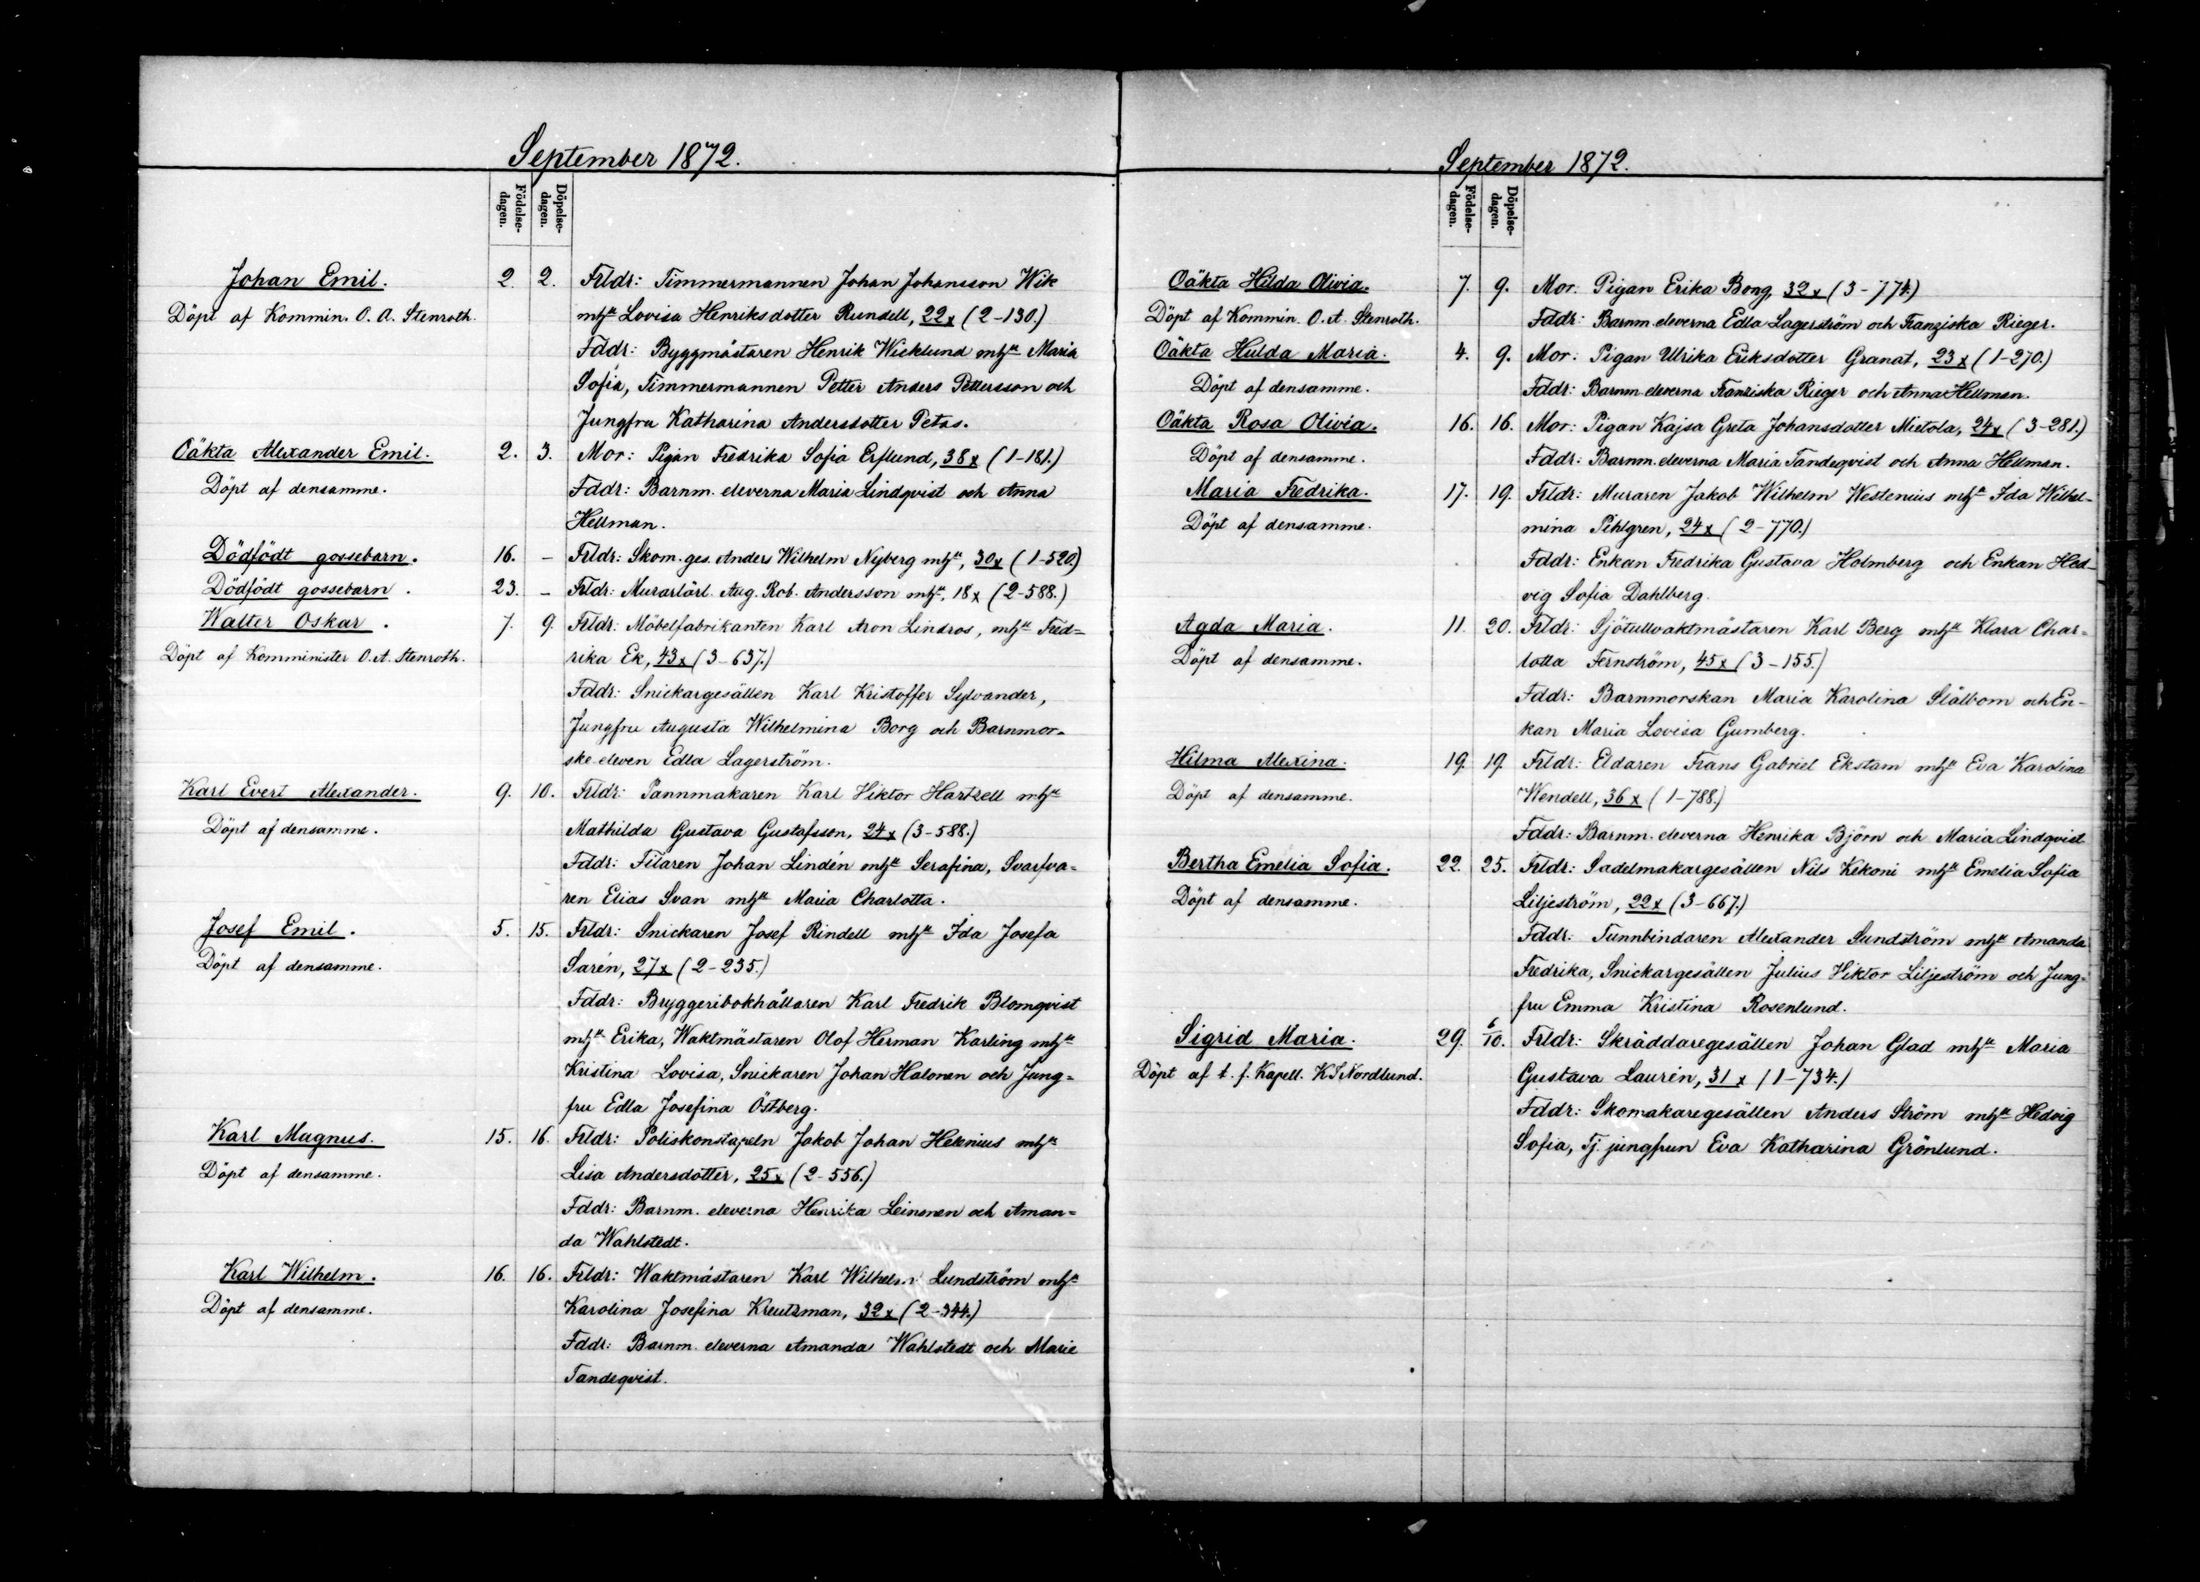 September 1872.
Födelse-
dagen.
Döpelse-
dagen.
Johan Emil. 2. 2. Frldr: Timmermannen Johan Johansson Wik
Döpt af Kommin. O. A. Stenroth. mhu Lovisa Henriksdotter Rundell, 22x (2-130.)
Fddr: Byggmästaren Henrik Wicklund mhu Maria
Sofia, Timmermannen Petter Anders Pettersson och
Jungfru Katharina Andersdotter Petas.
Oäkta Alexander Emil. 2. 3. Mor: Pigan Fredrika Sofia Erflund, 38x (1-181.)
Döpt af densamme. Fddr: Barnm. eleverna Maria Lindqvist och Anna
Hellman.
Dödfödt gossebarn. 16. - Frldr: Skom. ges. Anders Wilhelm Nyberg mhu, 30x (1-520.)
Dödfödt gossebarn. 23. - Frldr: Murarlärl. Aug. Rob. Andersson mhu, 18x (2-588.)
Walter Oskar. 7. 9. Frldr: Möbelfabrikanten Karl Aron Lindros, mhu Fred=
Döpt af Komminister O. A. Stenroth. rika Ek, 43x (3-637.)
Fddr: Snickargesällen Karl Kristoffer Sylvander,
Jungfru Augusta Wilhelmina Borg och Barnmor-
ske eleven Edla Lagerström.
Karl Evert Alexander. 9. 10. Frldr: Pannmakaren Karl Viktor Hartzell mhu
Döpt af densamme. Mathilda Gustava Gustafsson, 24x (3-588.)
Fddr: Filaren Johan Lindén mhu Serafina, Svarfva=
ren Elias Svan mhu Maria Charlotta.
Josef Emil. 5. 15. Frldr: Snickaren Josef Rindell mhu Ida Josefa
Döpt af densamme. Sarén, 27x (2-235.)
Fddr: Bryggeribokhållaren Karl Fredrik Blomqvist
mhu Erika, Waktmästaren Olof Herman Karling mhu
Kristina Lovisa, Snickaren Johan Halonen och Jung=
fru Edla Josefina Östberg.
Karl Magnus. 15. 16. Frldr: Poliskonstapeln Jakob Johan Helenius mhu
Döpt af densamme. Lisa Andersdotter, 25x (2-556.)
Fddr: Barnm. eleverna Henrika Leinonen och Aman=
da Wahlstedt.
Karl Wilhelm. 16. 16. Frldr: Waktmästaren Karl Wilhelm Lundström mhu
Döpt af densamme. Karolina Josefina Kreutzman, 32x (2-344.)
Fddr: Barnm. eleverna Amanda Wahlstedt och Marie
Tandeqvist.
September 1872.
Födelse-
dagen.
Döpelse-
dagen.
Oäkta Hilda Olivia. 7. 9. Mor: Pigan Erika Bong, 32x (3-774.)
Döpt af Kommin. O. A. Stenroth. Fddr: Barnm. eleverna Edla Lagerström och Franziska Rieger.
Oäkta Hulda Maria. 4. 9. Mor: Pigan Ulrika Eriksdotter Granat, 23x (1-270.)
Döpt af densamme. Fddr: Barnm. eleverna Franziska Rieger och Anna Hellman.
Oäkta Rosa Olivia. 16. 16. Mor: Pigan Kajsa Greta Johansdotter Mietola, 24x (3-281.)
Döpt af densamme. Fddr: Barnm. eleverna Maria Tandeqvist och Anna Hellman.
Maria Fredrika. 17. 19. Frldr: Muraren Jakob Wilhelm Westenius mhu Ida Wilhel-
Döpt af densamme. mina Pihlgren, 24x (2-770.)
Fddr: Enkan Fredrika Gustava Holmberg och Enkan Hed-
vig Sofia Dahlberg.
Agda Maria. 11. 20. Frldr: Sjötullvaktmästaren Karl Berg mhu Klara Char-
Döpt af densamme. lotta Fernström, 45x (3-155.)
Fddr: Barnmorskan Maria Karolina Stålbom och En-
kan Maria Lovisa Gumberg.
Hilma Alexina. 19. 19. Frldr: Eldaren Frans Gabriel Ekstam mhu Eva Karolina
Döpt af densamme. Wendell, 36x (1-788.)
Fddr: Barnm. eleverna Henrika Björn och Maria Lindqvist
Bertha Emelia Sofia. 22. 25. Frldr: Sadelmakargesällen Nils Kekoni mhu Emelia Sofia
Döpt af densamme. Liljeström, 22x (3-667.)
Fddr: Tunnbindaren Alexander Sundström mhu Amanda
Fredrika, Snickargesällen Julius Viktor Liljeström och Jung-
fru Emma Kristina Rosenlund.
Sigrid Maria. 29. 6/10. Frldr: Skräddaregesällen Johan Glad mhu Maria
Döpt af t. f. Kapell. K J Nordlund. Gustava Laurén, 31x (1-734.)
Fddr: Skomakaregesällen Anders Ström mhu Hedvig
Sofia, Tj. jungfrun Eva Katharina Grönlund.